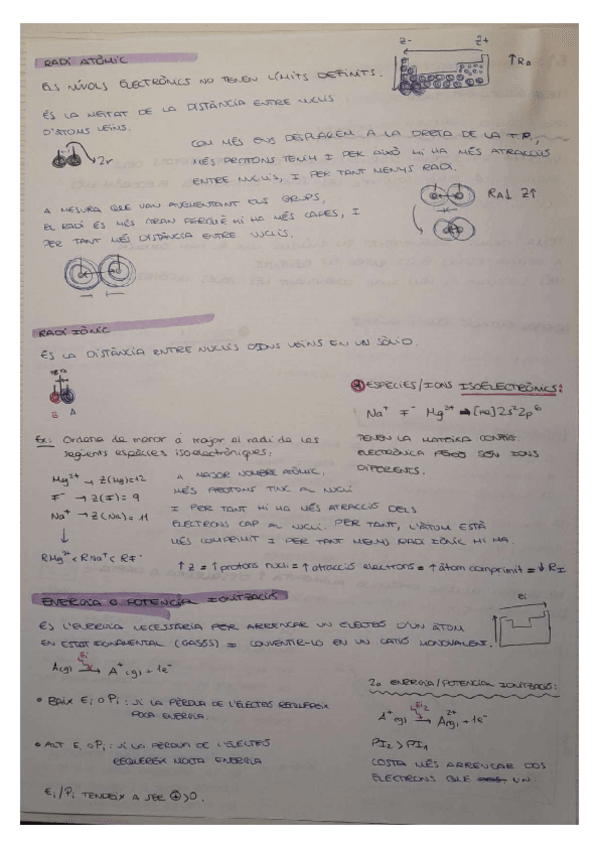 RADI ATÒMIC
Z- Z+
↑RA
ELS NIVELLS ELECTRÒNICS NO TENEN LÍMITS DEFINITS.
ÉS LA MEITAT DE LA DISTÀNCIA ENTRE NUCLIS
D'ÀTOMS VEÏNS.
2r
COM MÉS ENS DESPLACEM A LA DRETA DE LA T.P.,
MÉS PROTONS TENIM I PER AIXÒ HI HA MÉS ATRACCIÓ
ENTRE NUCLIS, I PER TANT MENYS RADI.
RA↓ Z↑
A MESURA QUE VAN AUGMENTANT ELS GRUPS,
EL RADI ÉS MÉS GRAN PERQUÈ HI HA MÉS CAPES, I
PER TANT MÉS DISTÀNCIA ENTRE NUCLIS.
RADI IÒNIC
ÉS LA DISTÀNCIA ENTRE NUCLIS D'IONS VEÏNS EN UN SÒLID.
B A
ESPÈCIES/IONS ISOELECTRÒNICS:
Na+ F- Mg2+ → [He]2s²2p⁶
TENEN LA MATEIXA CONFIG.
ELECTRÒNICA PERÒ SÓN IONS
DIFERENTS.
Ex: Ordena de menor a major el radi de les
següents espècies isoelectròniques:
Mg2+ → Z(Mg)=12
F- → Z(F)= 9
Na+ → Z(Na)= 11
↓
RMg2+ < RNa+ < RF-
A MAJOR NOMBRE ATÒMIC,
MÉS PROTONS TINC AL NUCLI
I PER TANT HI HA MÉS ATRACCIÓ DELS
ELECTRONS CAP AL NUCLI. PER TANT, L'ÀTOM ESTÀ
MÉS COMPRIMIT I PER TANT MENYS RADI IÒNIC HI HA.
↑Z = ↑protons nucli = ↑atracció electrons = ↑àtom comprimit = ↓RI
ENERGIA O POTENCIA IONITZACIÓ
Ei
ÉS L'ENERGIA NECESSÀRIA PER ARRENCAR UN ELECTRÓ D'UN ÀTOM
EN ESTAT FONAMENTAL (GASÓS) = CONVERTIR-LO EN UN CATIÓ MONOVALENT.
Ei
A(g) → A+(g) + 1e-
• BAIX Ei O Pi: SI LA PÈRDUA DE L'ELECTRÓ REQUEREIX
POCA ENERGIA.
• ALT Ei O Pi: SI LA PÈRDUA DE L'ELECTRÓ
REQUEREIX MOLTA ENERGIA
Ei/Pi TENDEIX A SER ⊕>0.
2a ENERGIA/POTENCIA IONITZACIÓ:
Ei2
A+(g) → A2+(g) + 1e-
PI2 > PI1
COSTA MÉS ARRENCAR DOS
ELECTRONS QUE UN.